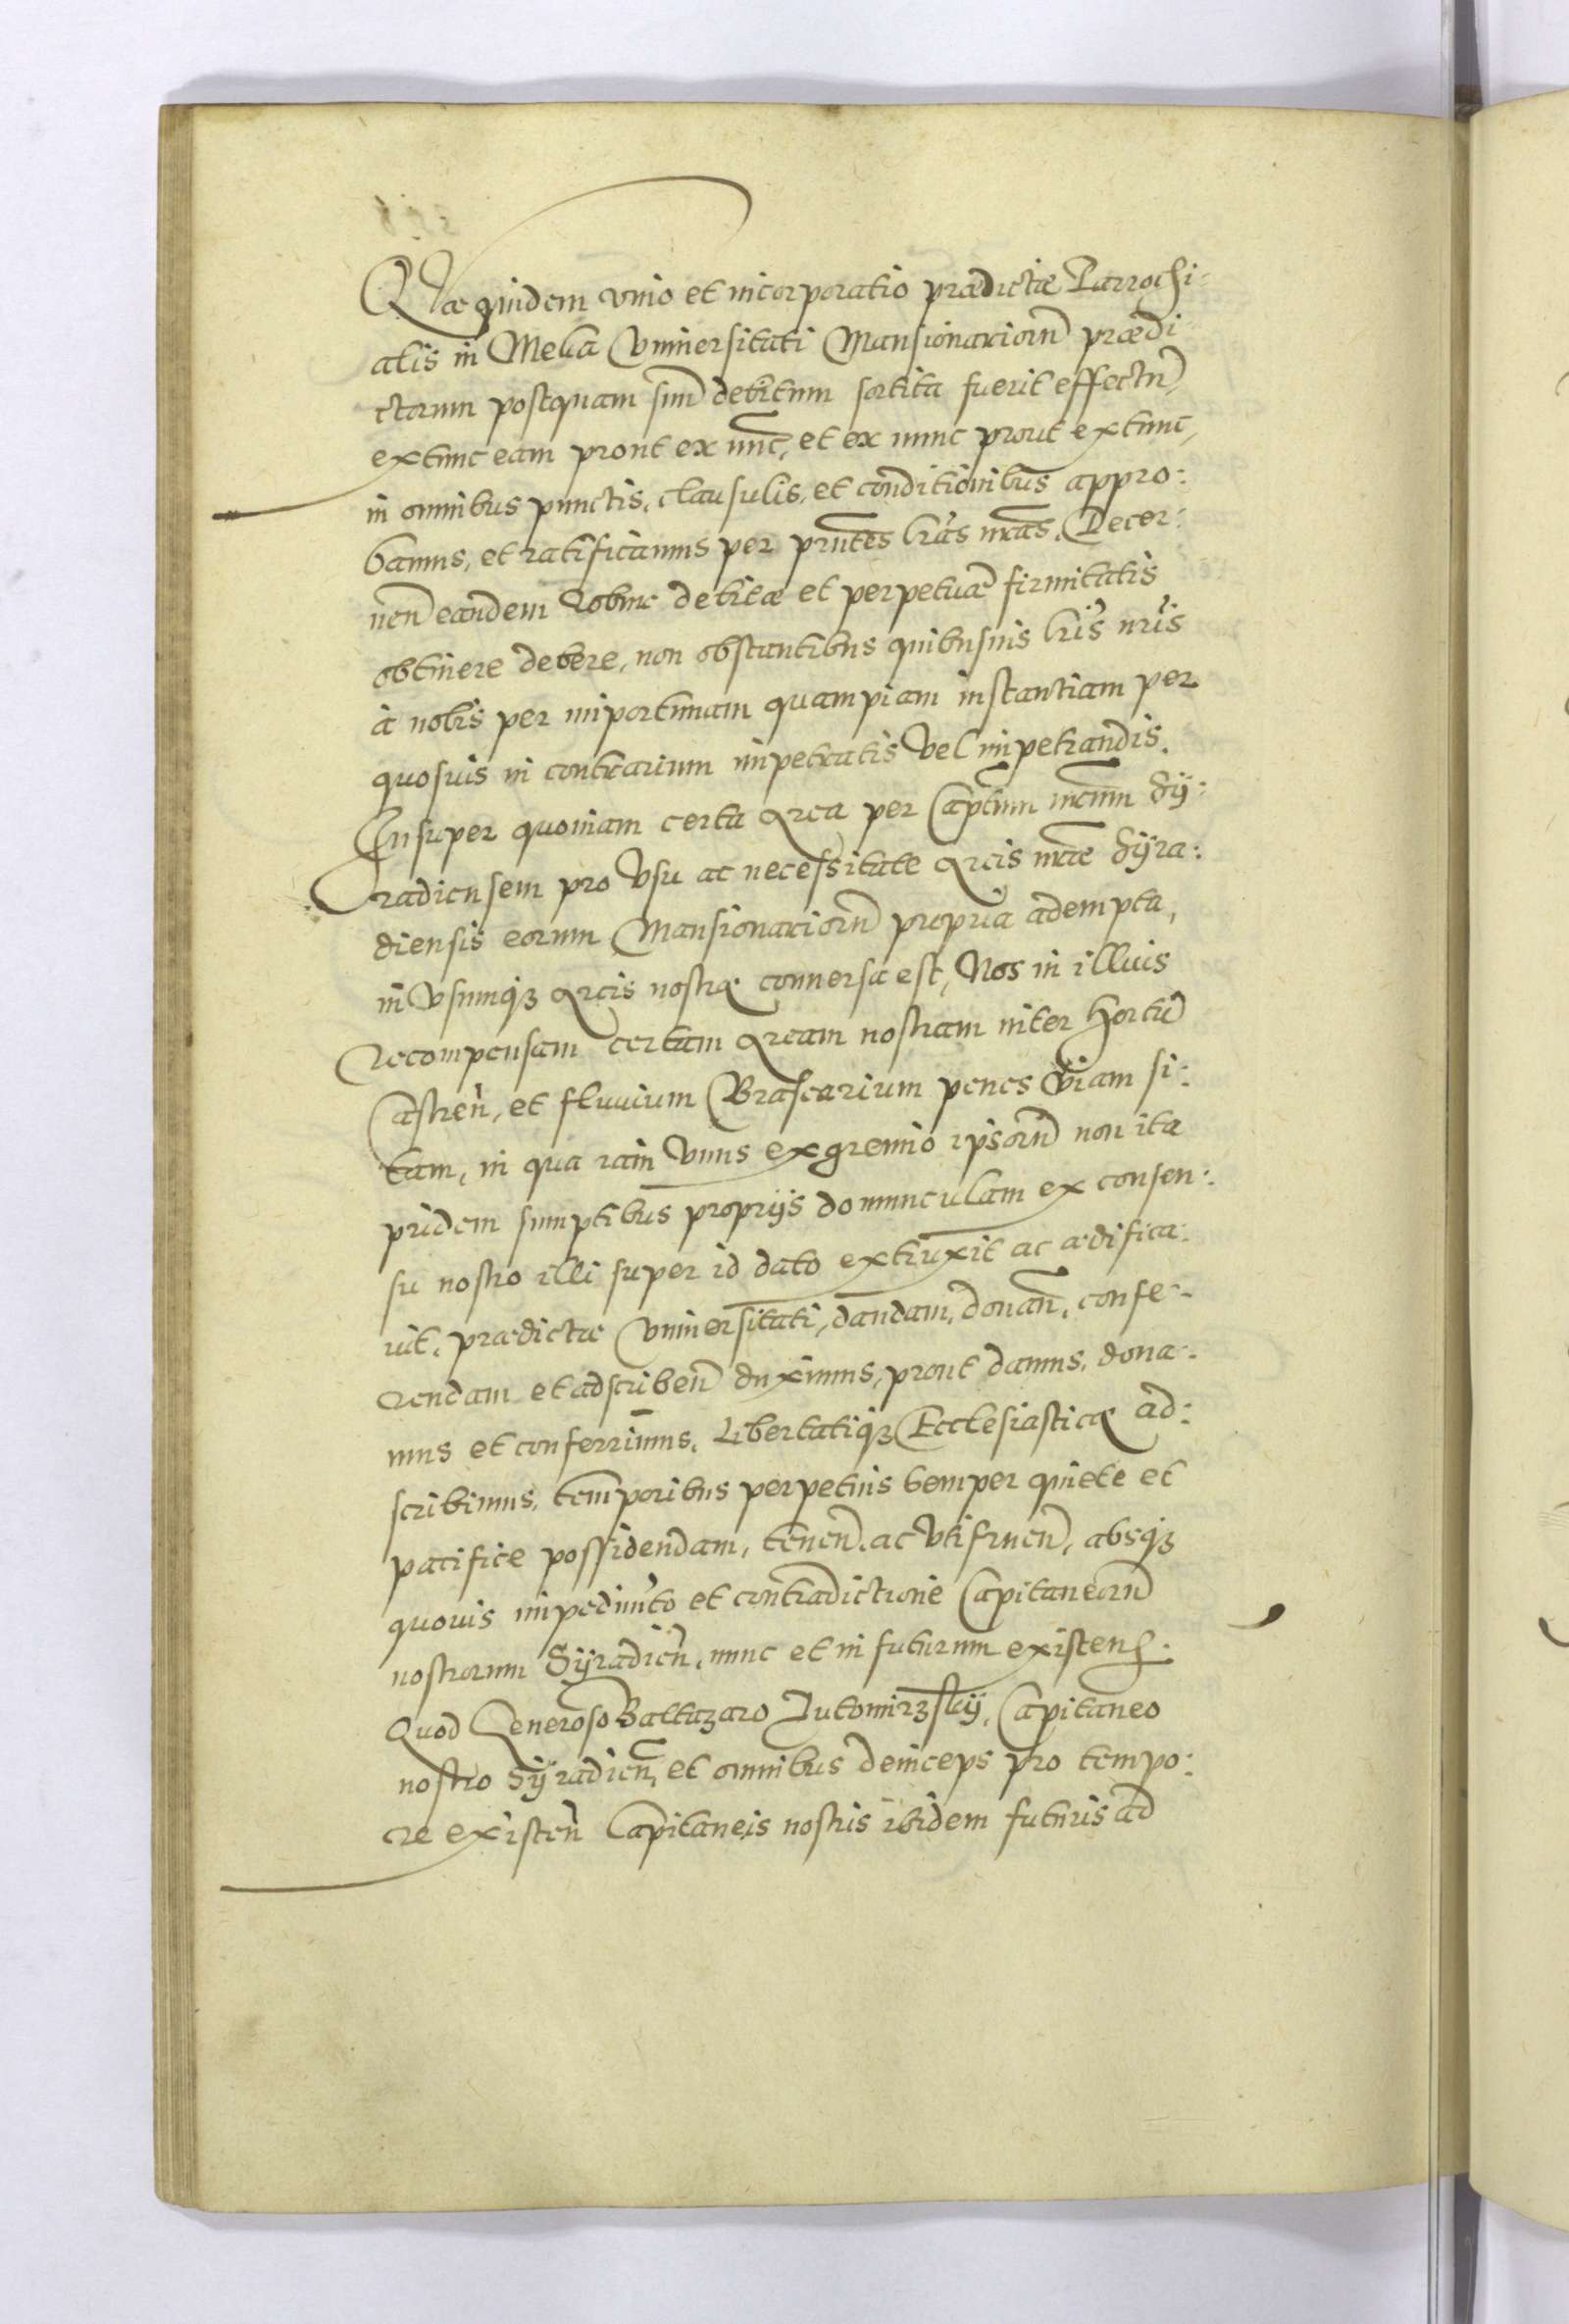 Quæ quidem vnio et incorporatio prædictæ Parrochi-
alis in Meka Vniuersitati Mansionariorũ prædi
ctorum postquam suũ debitum sortita fuerit effectũ,
extunc eam prout ex nũc, et ex nunc prout extunc,
in omnibus punctis, clausulis, et conditionibus appro:
bamus, et ratificamus per pñtes lras nras. Decer:
neñ eandem Robur debitæ et perpetuæ firmitatis
obtinere debere, non obstantibus quibusuis lris nris
à nobis per importunam quampiam instantiam per
quosuis in contrarium impetratis vel impetrandis.
Insuper quoniam certa Area per Captum nrum Sÿ:
radiensem pro vsu ac necessitate Arcis nræ Sÿra:
diensis eorum Mansionariorũ propria adempta,
in vsumqꝫ Arcis nostræ conuersa est, Nos in illius
Recompensam certam Aream nostram inter Hortũ
Castreñ, et fluuium Braszarium penes viam si:
tam, in qua iam vnus ex gremio ipsorũ non ita
pridem sumptibus proprijs domunculam ex consen:
su nostro illi super id dato extruxit ac ædifica:
uit, prædictæ Vniuersitati, dandam, donañ, confe-
rendam et adscribeñ duximus, prout damus, dona-
mus et conferrimus, Libertatiqꝫ Ecclesiasticæ ad:
scribimus, temporibus perpetuis semper quiete et
pacifice possidendam, teneñ. ac vtifrueñ, absqꝫ
quouis impedimto et contradictione Capitaneorũ
nostrorum Sÿradieñ, nunc et in futurum existeñ.
Quod Generoso Baltazaro Lutomirzskÿ, Capitaneo
nostro Sÿradieñ, et omnibus deinceps pro tempo:
re existeñ Capitaneis nostris ibidem futuris ad